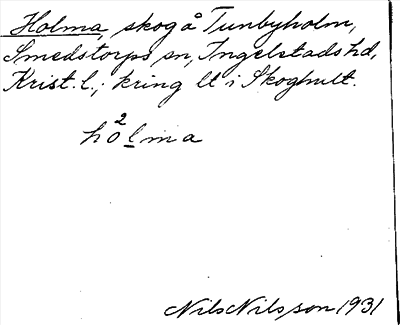 Holma, skog å Tunbyholm,
Smedstorps sn, Ingelstads hd,
Krist. l.; kring lt i Skoghult.
hò²lma
Nils Nilsson 1931